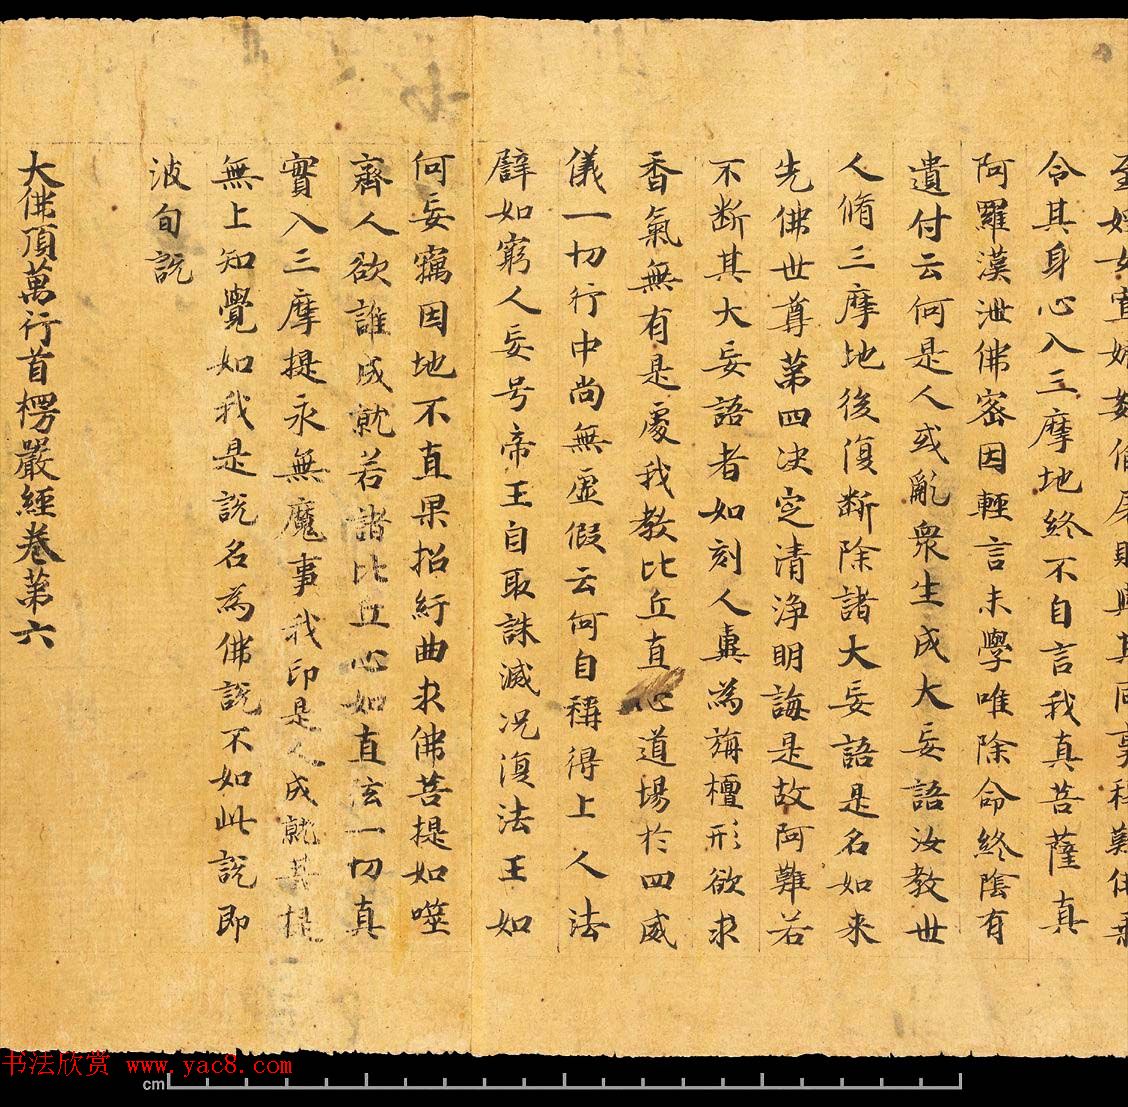 令其身心入三摩地終不自言我真菩薩真
阿羅漢泄佛密因輕言未學唯除命終陰有
遺付云何是人或亂衆生成大妄語汝教世
人脩三摩地後復断除諸大妄語是名如来
先佛世尊第四决定清浄明誨是故阿難若
不断其大妄語者如刻人糞為旃檀形欲求
香氣無有是處我教比丘直心道場扵四威
儀一切行中尚無虚假云何自稱得上人法
辟如窮人妄号帝王自取誅滅况復法王如
何妄竊因地不直果招紆曲求佛菩提如噬
齊人欲誰成就若諸比丘心如直弦一切真
實入三摩提永無魔事我印是人成就菩提
無上知覺如我是說名為佛說不如此說即
波旬說
大佛頂萬行首楞嚴經卷第六
书法欣赏 www.yac8.com
cm